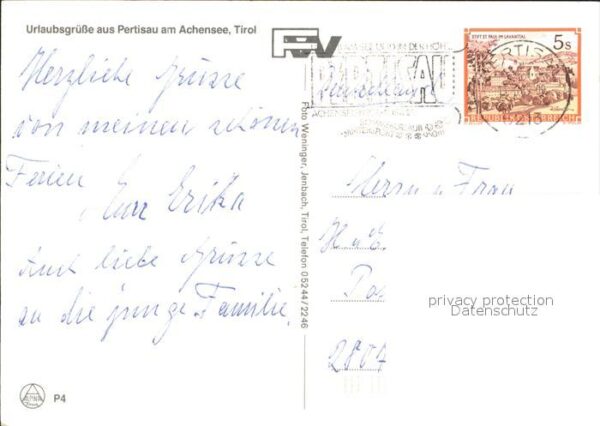 Urlaubsgrüße aus Pertisau am Achensee, Tirol
Herzliche Grüsse
von meinen schönen
Ferien
Eure Erika
Auch liebe Grüsse
an die junge Familie.
P4
Foto Weninger, Jenbach, Tirol, Telefon 05244/2246
PERTISAU
Deutschland
STIFT ST. PAUL IM LAVANTTAL
5 S
REPUBLIK ÖSTERREICH
PERTISAU
Herrn u Frau
H u E
Pos
privacy protection
Datenschutz